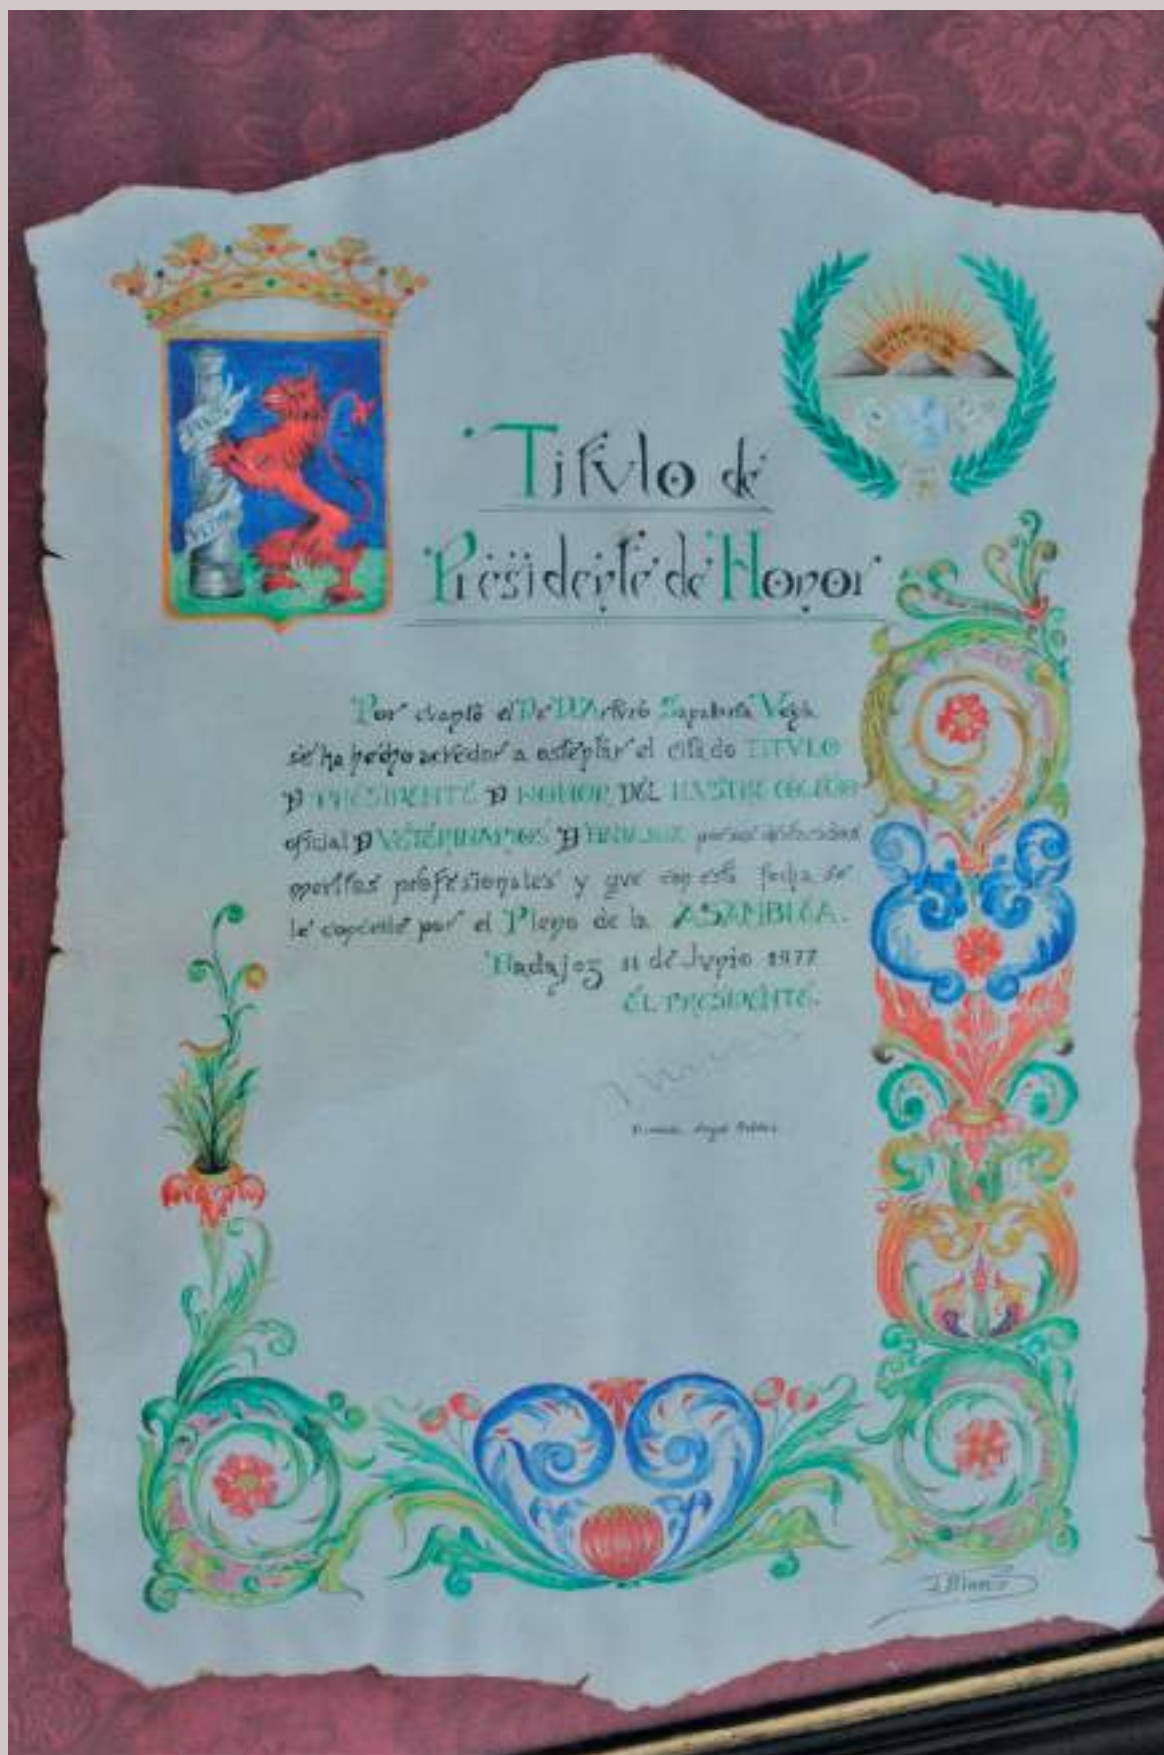 PLVS
VLTRA
Titvlo de
Presidente de Honor
Por cvanto el Dr D. Artvro Sanabria Vega
se ha hecho acredor a ostentar el citado TITVLO
D PRESIDENTE D HONOR DEL ILVSTRE COLEGIO
oficial D VETERINARIOS D BADAJOZ por svs destacados
meritos profesionales y qve con esta fecha se
le concede por el Pleno de la ASAMBLEA.
Badajoz 11 de Jvnio 1977
EL PRESIDENTE.